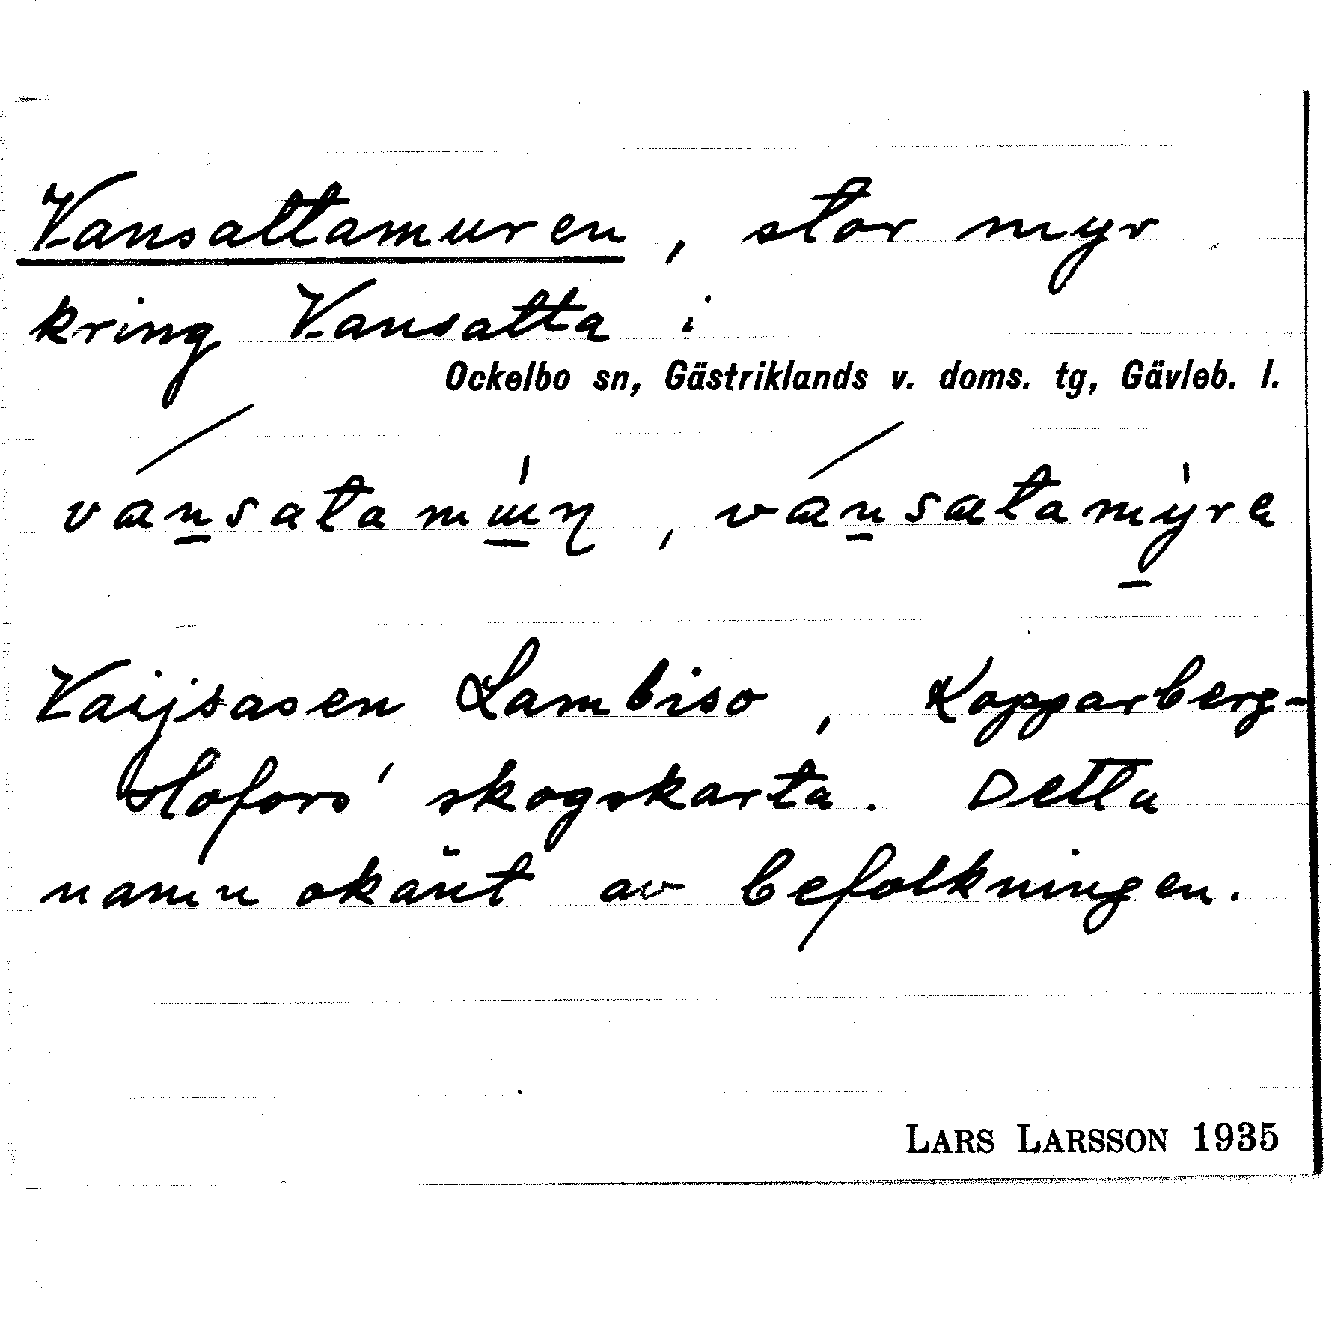 Vansattamuren, stor myr
kring Vansatta i
Ockelbo sn, Gästriklands v. doms. tg, Gävleb. l.
vansatamɯ̀ɳ, vansatamỳra
Vaijsasen Lambiso, Kopparberg-
Hofors' skogskarta. Detta
namn okänt av befolkningen.
LARS LARSSON 1935